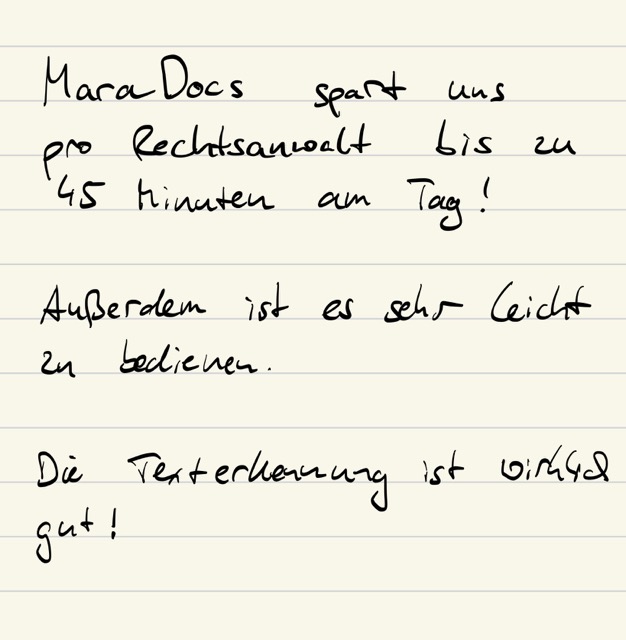 MaraDocs spart uns
pro Rechtsanwalt bis zu
45 Minuten am Tag!
Außerdem ist es sehr leicht
zu bedienen.
Die Texterkennung ist wirklich
gut!